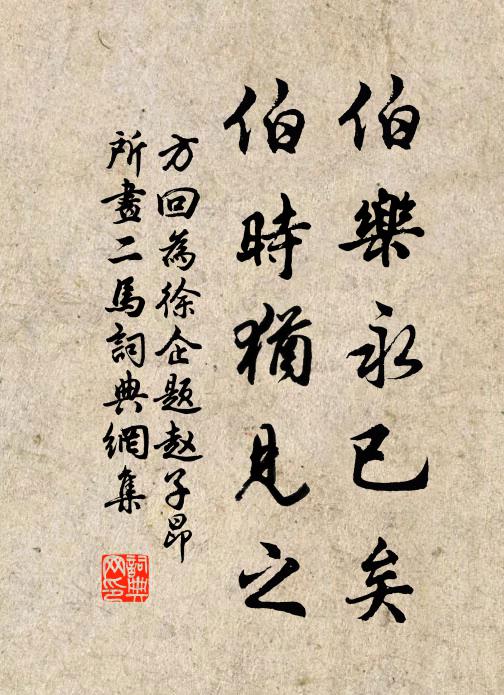 伯樂永已矣
伯時猶見之
方回為徐企題趙子昂
所畫二馬詞典網集
詞典网印